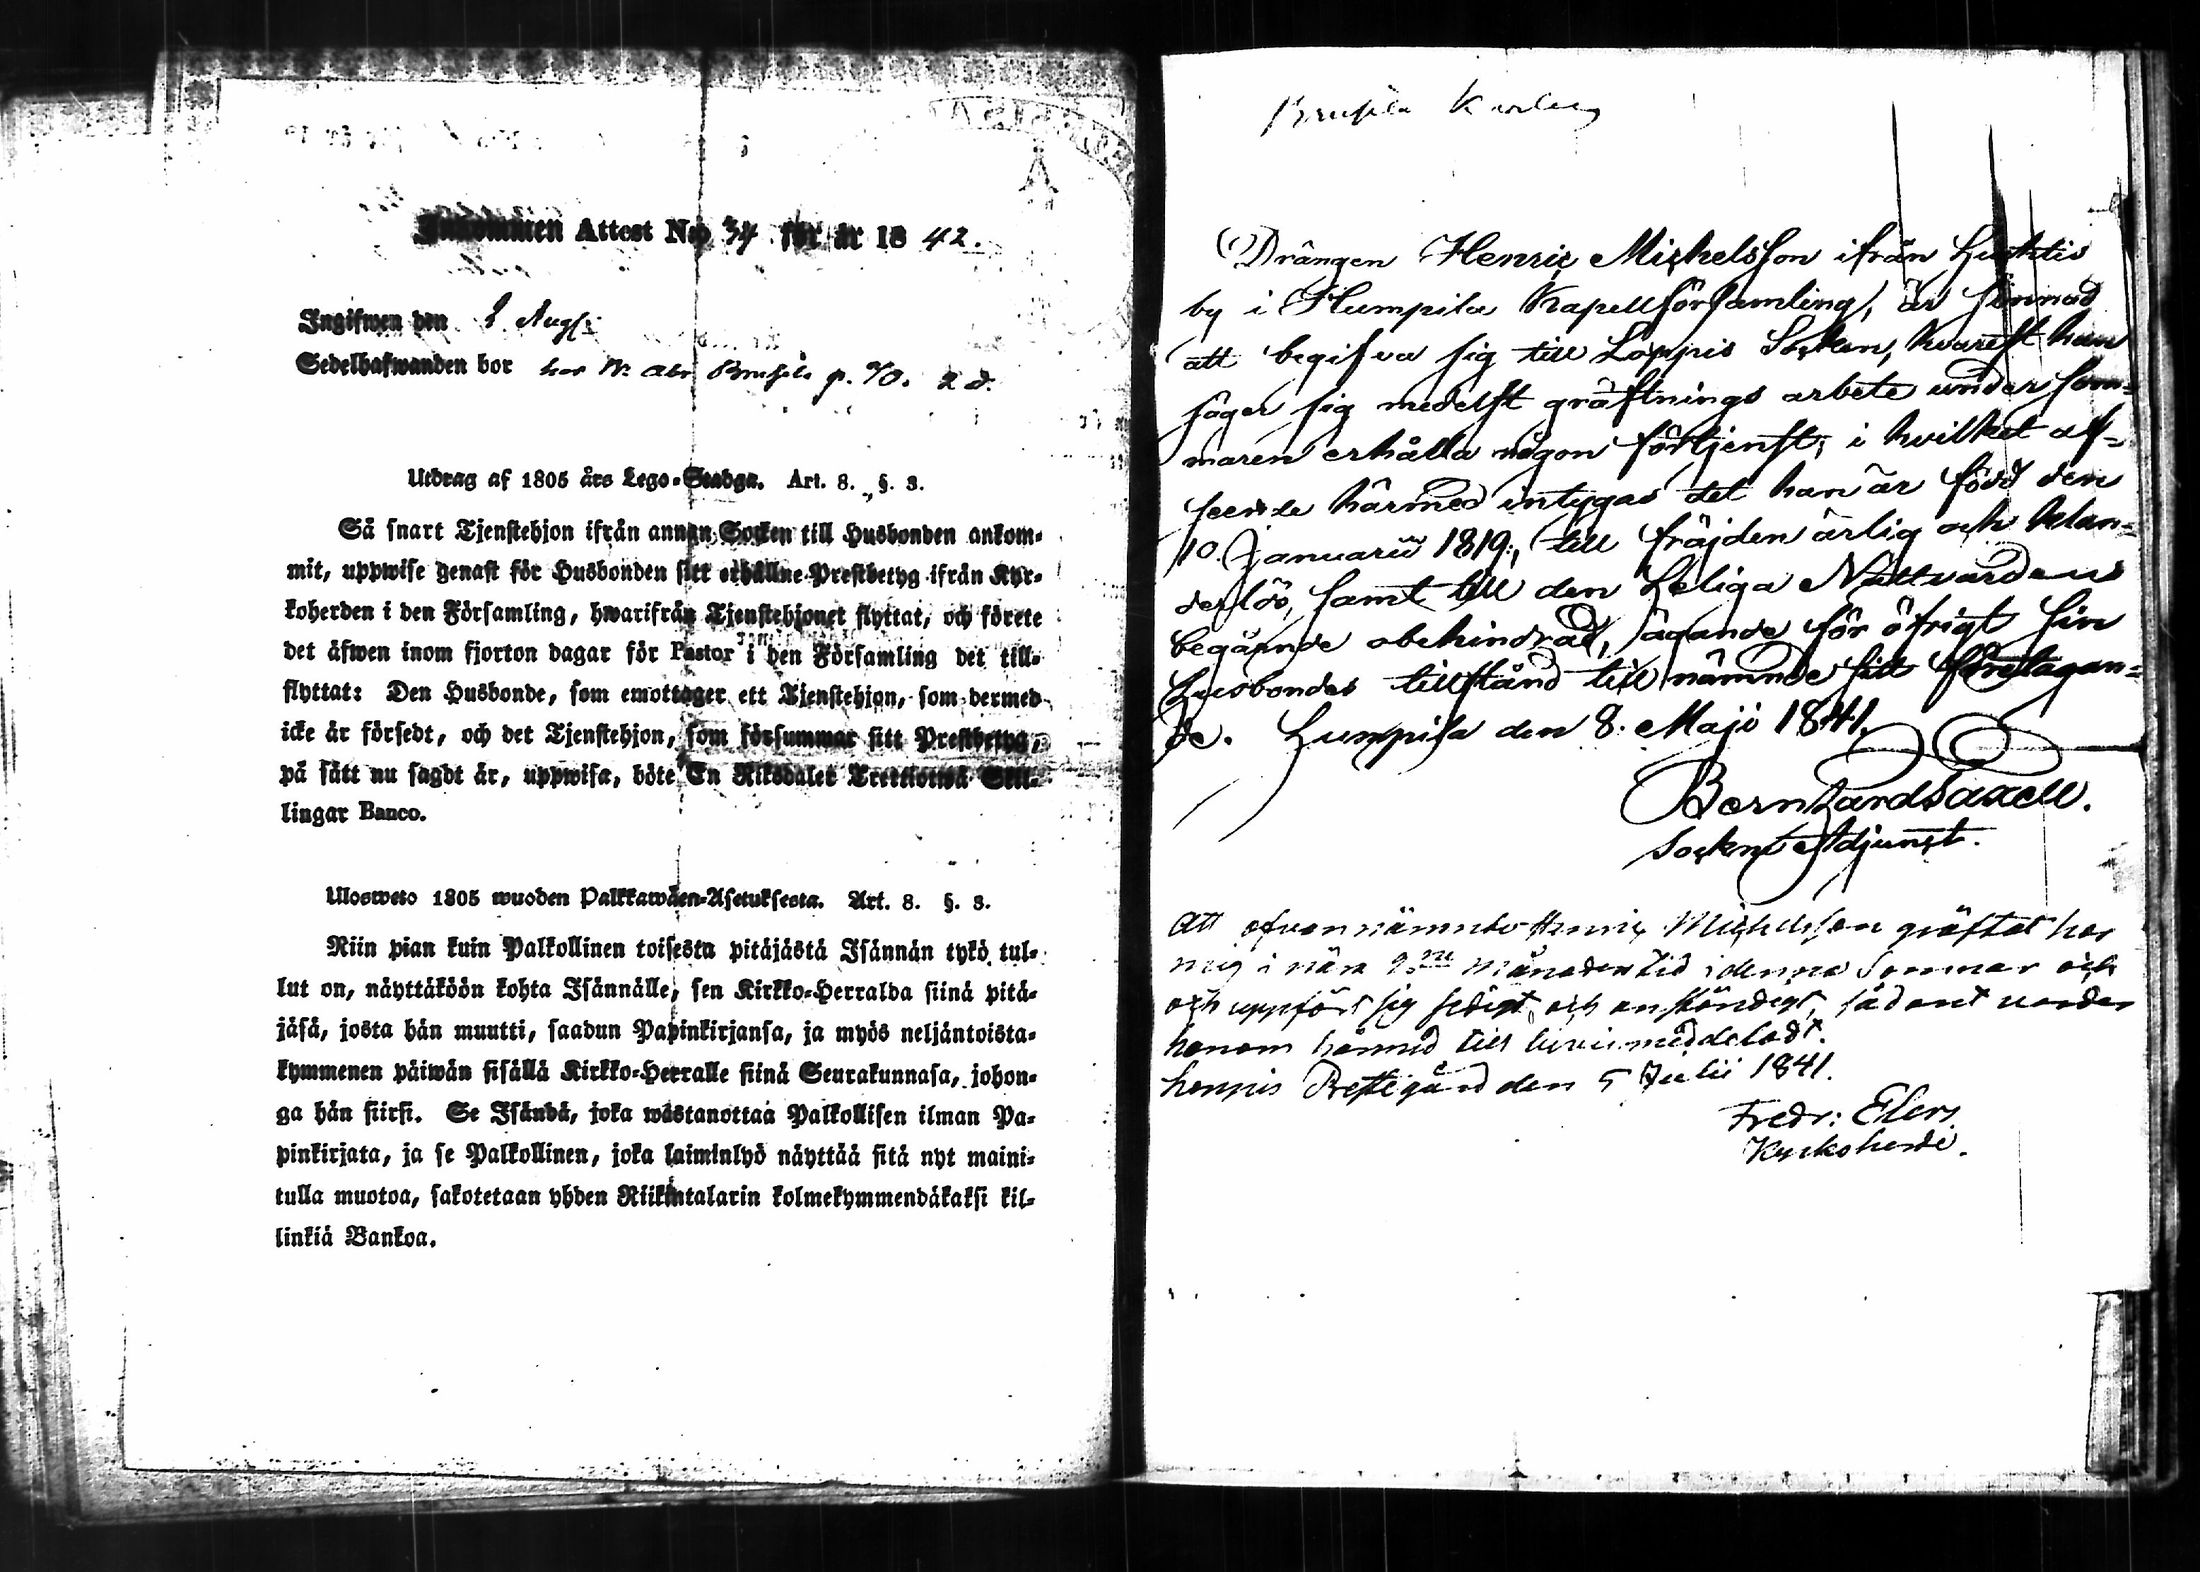 Inkommen Attest No 34 för år 1842.
Ingifwen den 2 Augsti
Sedelhafwanden bor hos Abr Brusila p. 70. 2 d.
Utdrag af 1805 års Lego-Stadga. Art. 8. §. 3.
Så snart Tjenstehjon ifrån annan Socken till Husbonden ankom-
mit, uppwise genast för Husbonden sitt erhållne Prestbetyg ifrån Kyr-
koherden i den Församling, hwarifrån Tjenstehjonet flyttat, och förete
det äfwen inom fjorton dagar för Pastor i den Församling det till-
flyttat: Den Husbonde, som emottager ett Tjenstehjon, som dermed
icke är försedt, och det Tjenstehjon, som försummar sitt Prestbetyg,
på sätt nu sagdt är, uppwisa, böte En Riksdaler Trettiotwå Skil-
lingar Banco.
Ulosweto 1805 wuoden Palkkawäen-Asetuksesta. Art. 8. §. 3.
Niin pian kuin Palkollinen toisesta pitäjästä Isännän tykö tul-
lut on, näyttäköön kohta Isännälle, sen Kirkko-Herralda siinä pitä-
jäsä, josta hän muutti, saadun Papinkirjansa, ja myös neljäntoista-
kymmenen päiwän sisällä Kirkko-Herralle siinä Seurakunnasa, johon-
ga hän siirsi. Se Isändä, joka wastanottaa Palkollisen ilman Pa-
pinkirjata, ja se Palkollinen, joka laiminlyö näyttää sitä nyt maini-
tulla muotoa, sakotetaan yhden Riikintalarin kolmekymmendäkaksi kil-
linkiä Bankoa.
Brusila
Drängen Henric Michelsson ifrån Huhtis
by i Humpila Kapellförsamling, är sinnad
att begifva sig till Loppis Socken, hvarest han
säger sig medelst gräftnings arbete under som-
maren erhålla någon förtjenst; i hvilket af-
seende härmed intygas det han är född den
10. Januarii 1819, till fräjden ärlig och klan-
derlös, samt till den Heliga Nattvardens
begående obehindrad, ägande för öfrigt sin
Husbondes tillstånd till nämnde sitt företagan-
de. Humpila den 8. Maji 1841.
Bernhard Saxell.
Sockne Adjunct.
Att ofvannämnde Henric Michelsson gräftat hos
mig i nära månaders tid i denna Sommar och
och uppfört sig sedigt och anständigt, sådant varder
honom härmed till bevis meddeladt.
Loppis Prestegård den 5 Julii 1841.
Fredr: Elers.
Kyrkoherde.